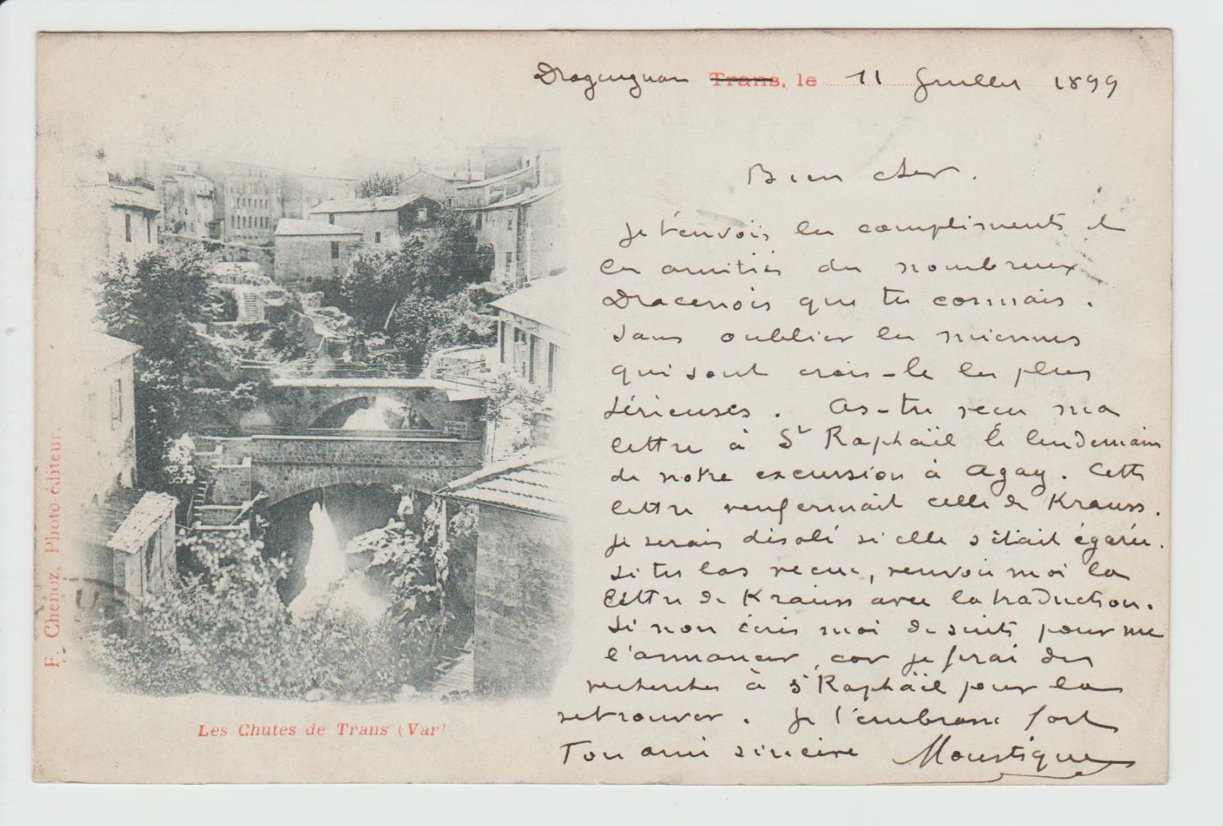 Draguignan Trans, le 11 Juillet 1899
Bien cher.
Je t'envois les compliments et
les amitiés des nombreux
Dracenois que tu connais.
Sans oublier les miennes
qui sont crois-le les plus
sérieuses. As-tu reçu ma
lettre à St Raphaël le lendemain
de notre excursion à Agay. Cette
lettre renfermait celle de Krauss.
Je serais désolé si elle s'était égarée.
Si tu l'as reçue, renvoie moi la
lettre de Krauss avec la traduction.
Si non écris moi de suite pour me
l'annoncer, car je ferai des
recherches à St Raphaël pour la
retrouver. Je t'embrasse fort
Ton ami sincère Moustique
F. Chenoz, Photo-éditeur.
Les Chutes de Trans (Var)